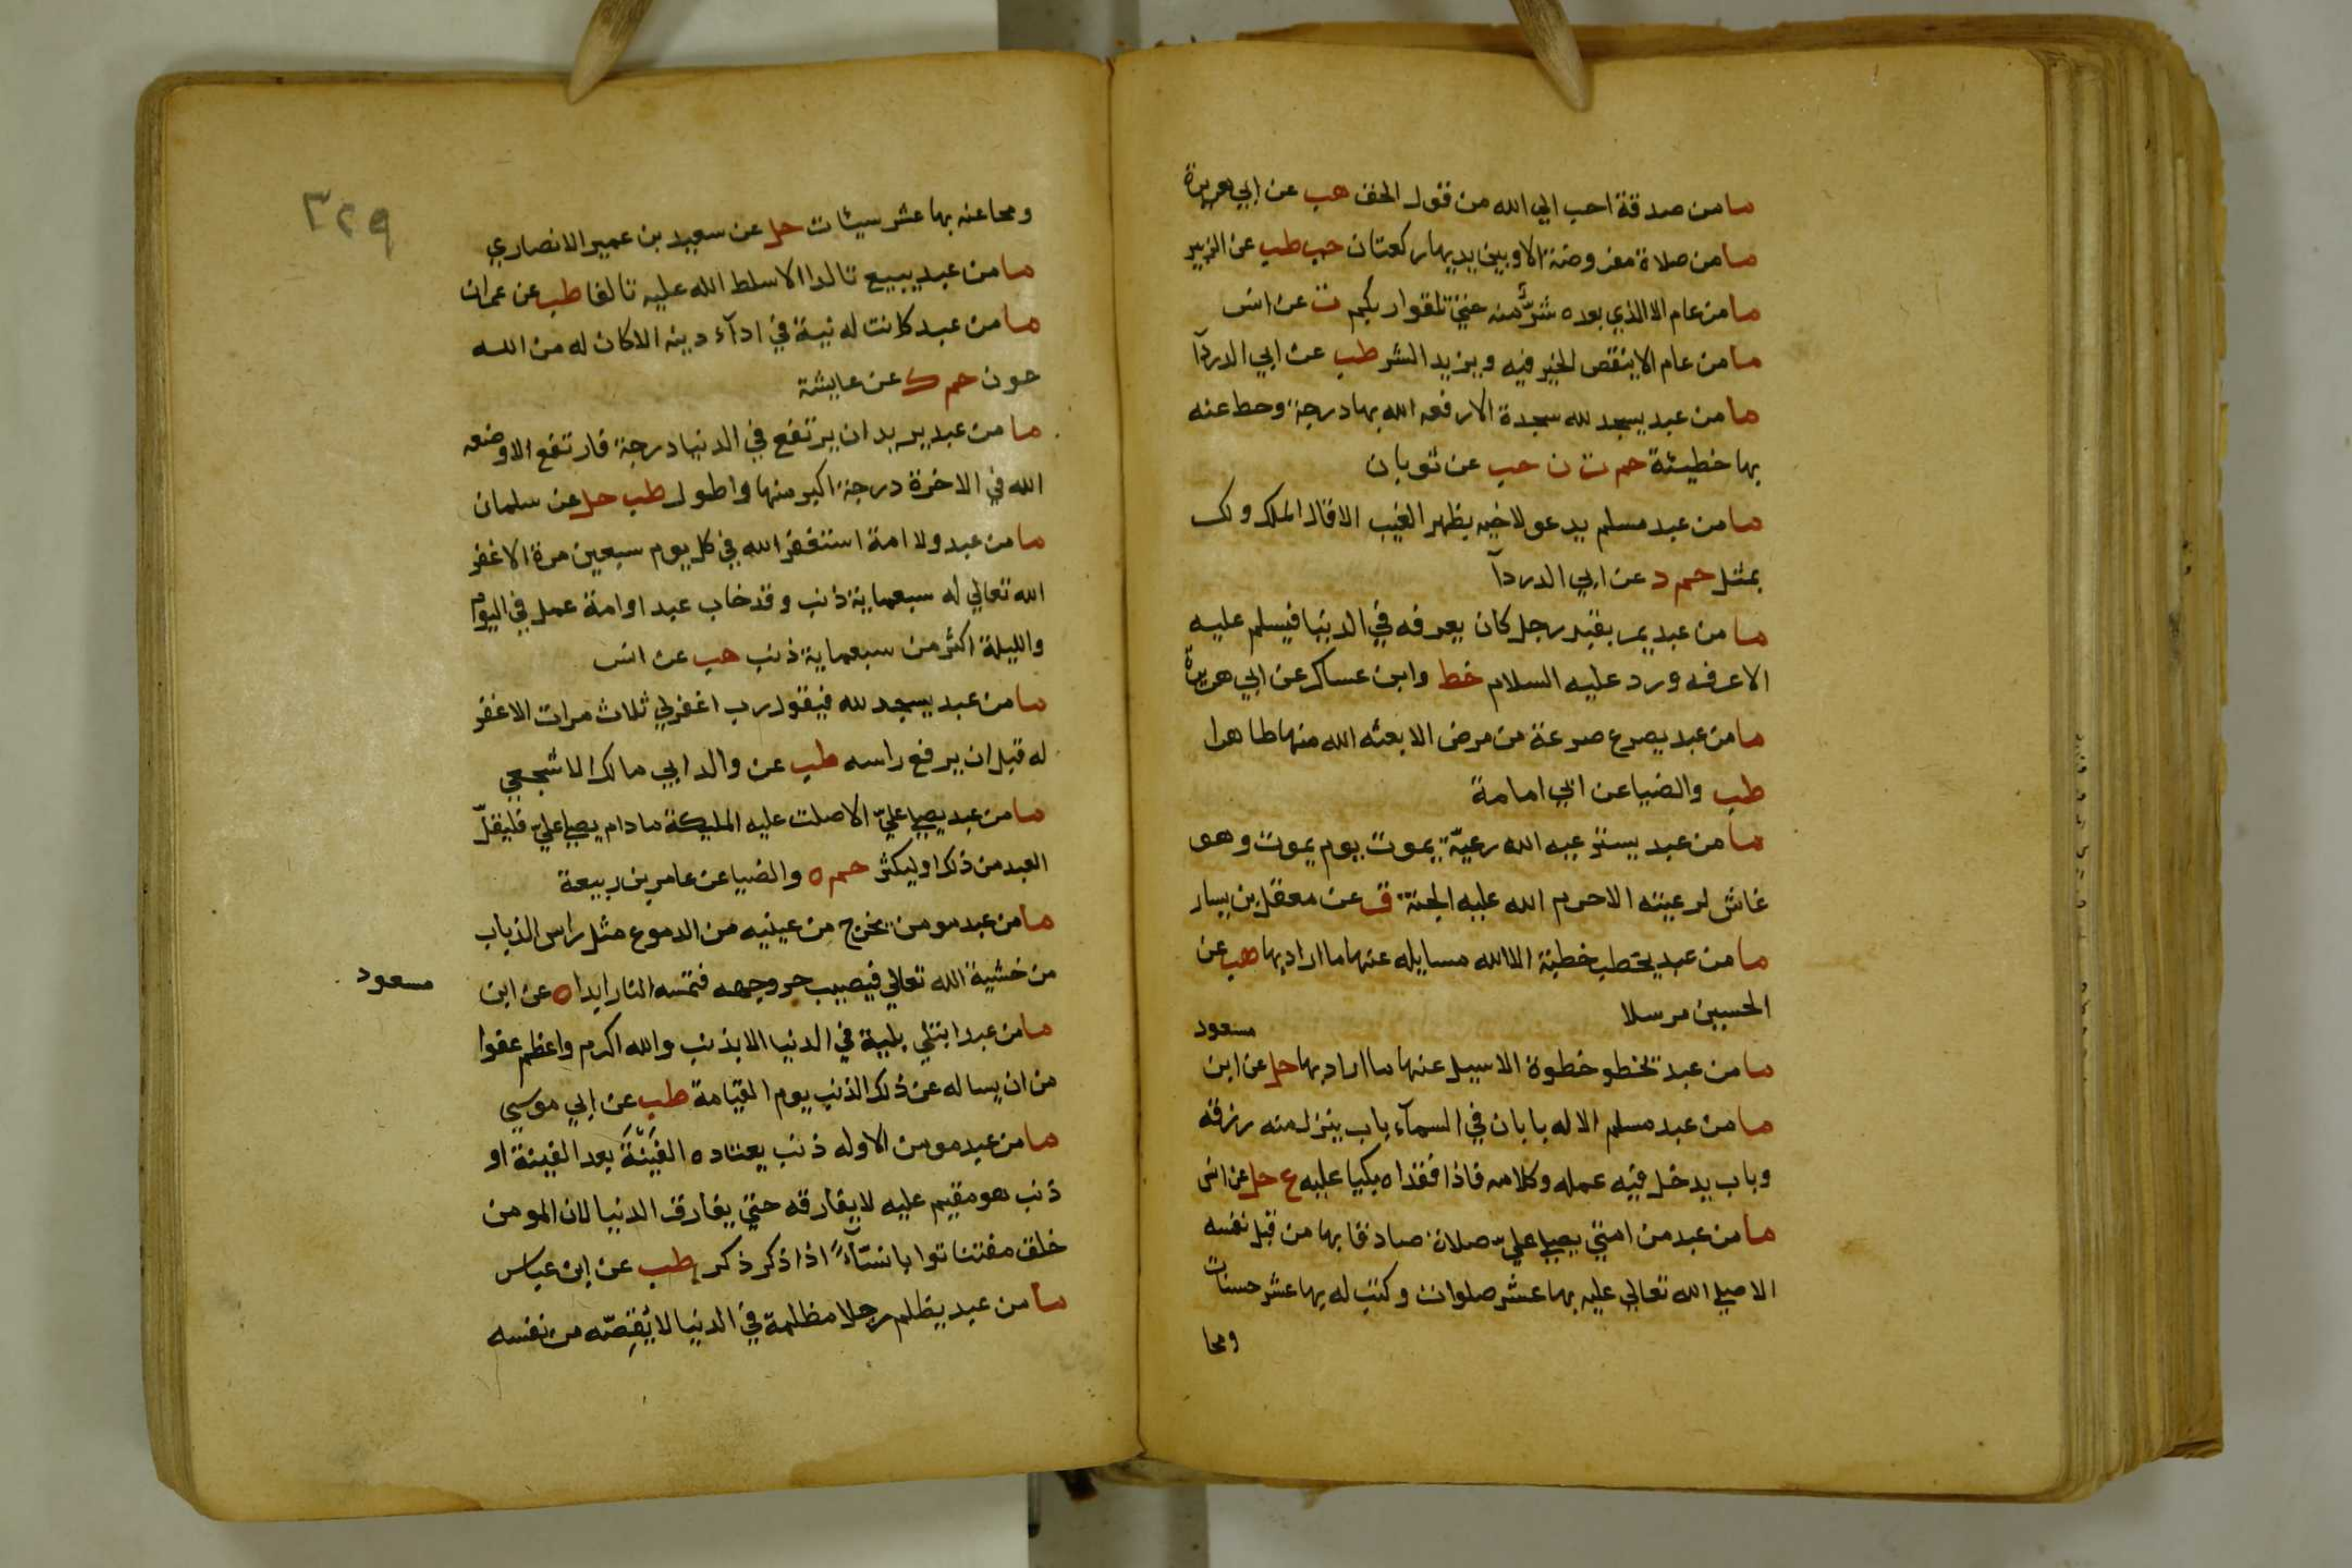 ما من صدقة احب الي الله من قول الحق هب عن ابي هريرة
ما من صلاة مفروضة الا وبين يديها ركعتان حب طب عن الزبير
ما من عام الا الذي بعده شرٌّ منه حتي تلقوا ربكم ت عن انس
ما من عام الا ينقص الخير فيه ويزيد الشر طب عن ابي الدردآ
ما من عبد يسجد لله سجدة الا رفعه الله بها درجة وحط عنه
بها خطيئة حم ت ن حب عن ثوبان
ما من عبد مسلم يدعو لاخيه بظهر الغيب الا قال الملك ولك
بمثل حم د عن ابي الدردآ
ما من عبد يمر بقبر رجل كان يعرفه في الدنيا فيسلم عليه
الا عرفه ورد عليه السلام خط وابن عساكر عن ابي هريرة
ما من عبد يصرع صرعة من مرض الا بعثه الله منها طاهرا
طب والضيا عن ابي امامة
ما من عبد يسترعيه الله رعيّة يموت يوم يموت وهو
غاش لرعيته الا حرم الله عليه الجنة ق عن معقل بن يسار
ما من عبد يخطب خطبة الا الله مسايله عنها ما اراد بها هب عن
الحسين مرسلا
مسعود
ما من عبد تخطو خطوة الا سيل عنها ما اراد بها حل عن ابن
ما من عبد مسلم الا له بابان في السمآء باب ينزل منه رزقه
وباب يدخل فيه عمله وكلامه فاذا فقداه بكيا عليه ع حل عن انس
ما من عبد من امتي يصلي عليّ صلاة صادقا بها من قبل نفسه
الا صلي الله تعالي عليه بها عشر صلوات وكتب له بها عشر حسنات
ومحا
٣٢٩
ومحا عنه بها عشر سيئات حل عن سعيد بن عمير الانصاري
ما من عبد يبيع تالدا الا سلط الله عليه تالفا طب عن عمران
ما من عبد كانت له نية في ادآء دينه الا كان له من الله
عون حم ك عن عايشة
ما من عبد يريد ان يرتفع في الدنيا درجة فارتفع الا وضعه
الله في الاخرة درجة اكبر منها واطول طب حل عن سلمان
ما من عبد ولا امة استغفر الله في كل يوم سبعين مرة الا غفر
الله تعالي له سبعماية ذنب وقد خاب عبد او امة عمل في اليوم
والليلة اكثر من سبعماية ذنب هب عن انس
ما من عبد يسجد لله فيقول رب اغفرلي ثلاث مرات الا غفر
له قبل ان يرفع راسه طب عن والد ابي مالك الاشجعي
ما من عبد يصلي عليّ الا صلت عليه المليكة ما دام يصلي عليّ فليقلّ
العبد من ذلك او ليكثر حم ه والضيا عن عامر بن ربيعة
ما من عبد مومن يخرج من عينيه من الدموع مثل راس الذباب
من خشية الله تعالي فيصيب حر وجهه فتمسه النار ابدا ه عن ابن
مسعود
ما من عبد ابتلي ببلية في الدنيا الا بذنب والله اكرم واعظم عفوا
من ان يساله عن ذلك الذنب يوم القيامة طب عن ابي موسي
ما من عبد مومن الا وله ذنب يعتاده الفَيْنَةَ بعد الفينة او
ذنب هو مقيم عليه لا يفارقه حتي يفارق الدنيا لان المومن
خلق مفتنا توابا نسّآءً اذا ذكر ذكر طب عن ابن عباس
ما من عبد يظلم رجلا مظلمة في الدنيا لا يُقِصّه من نفسه